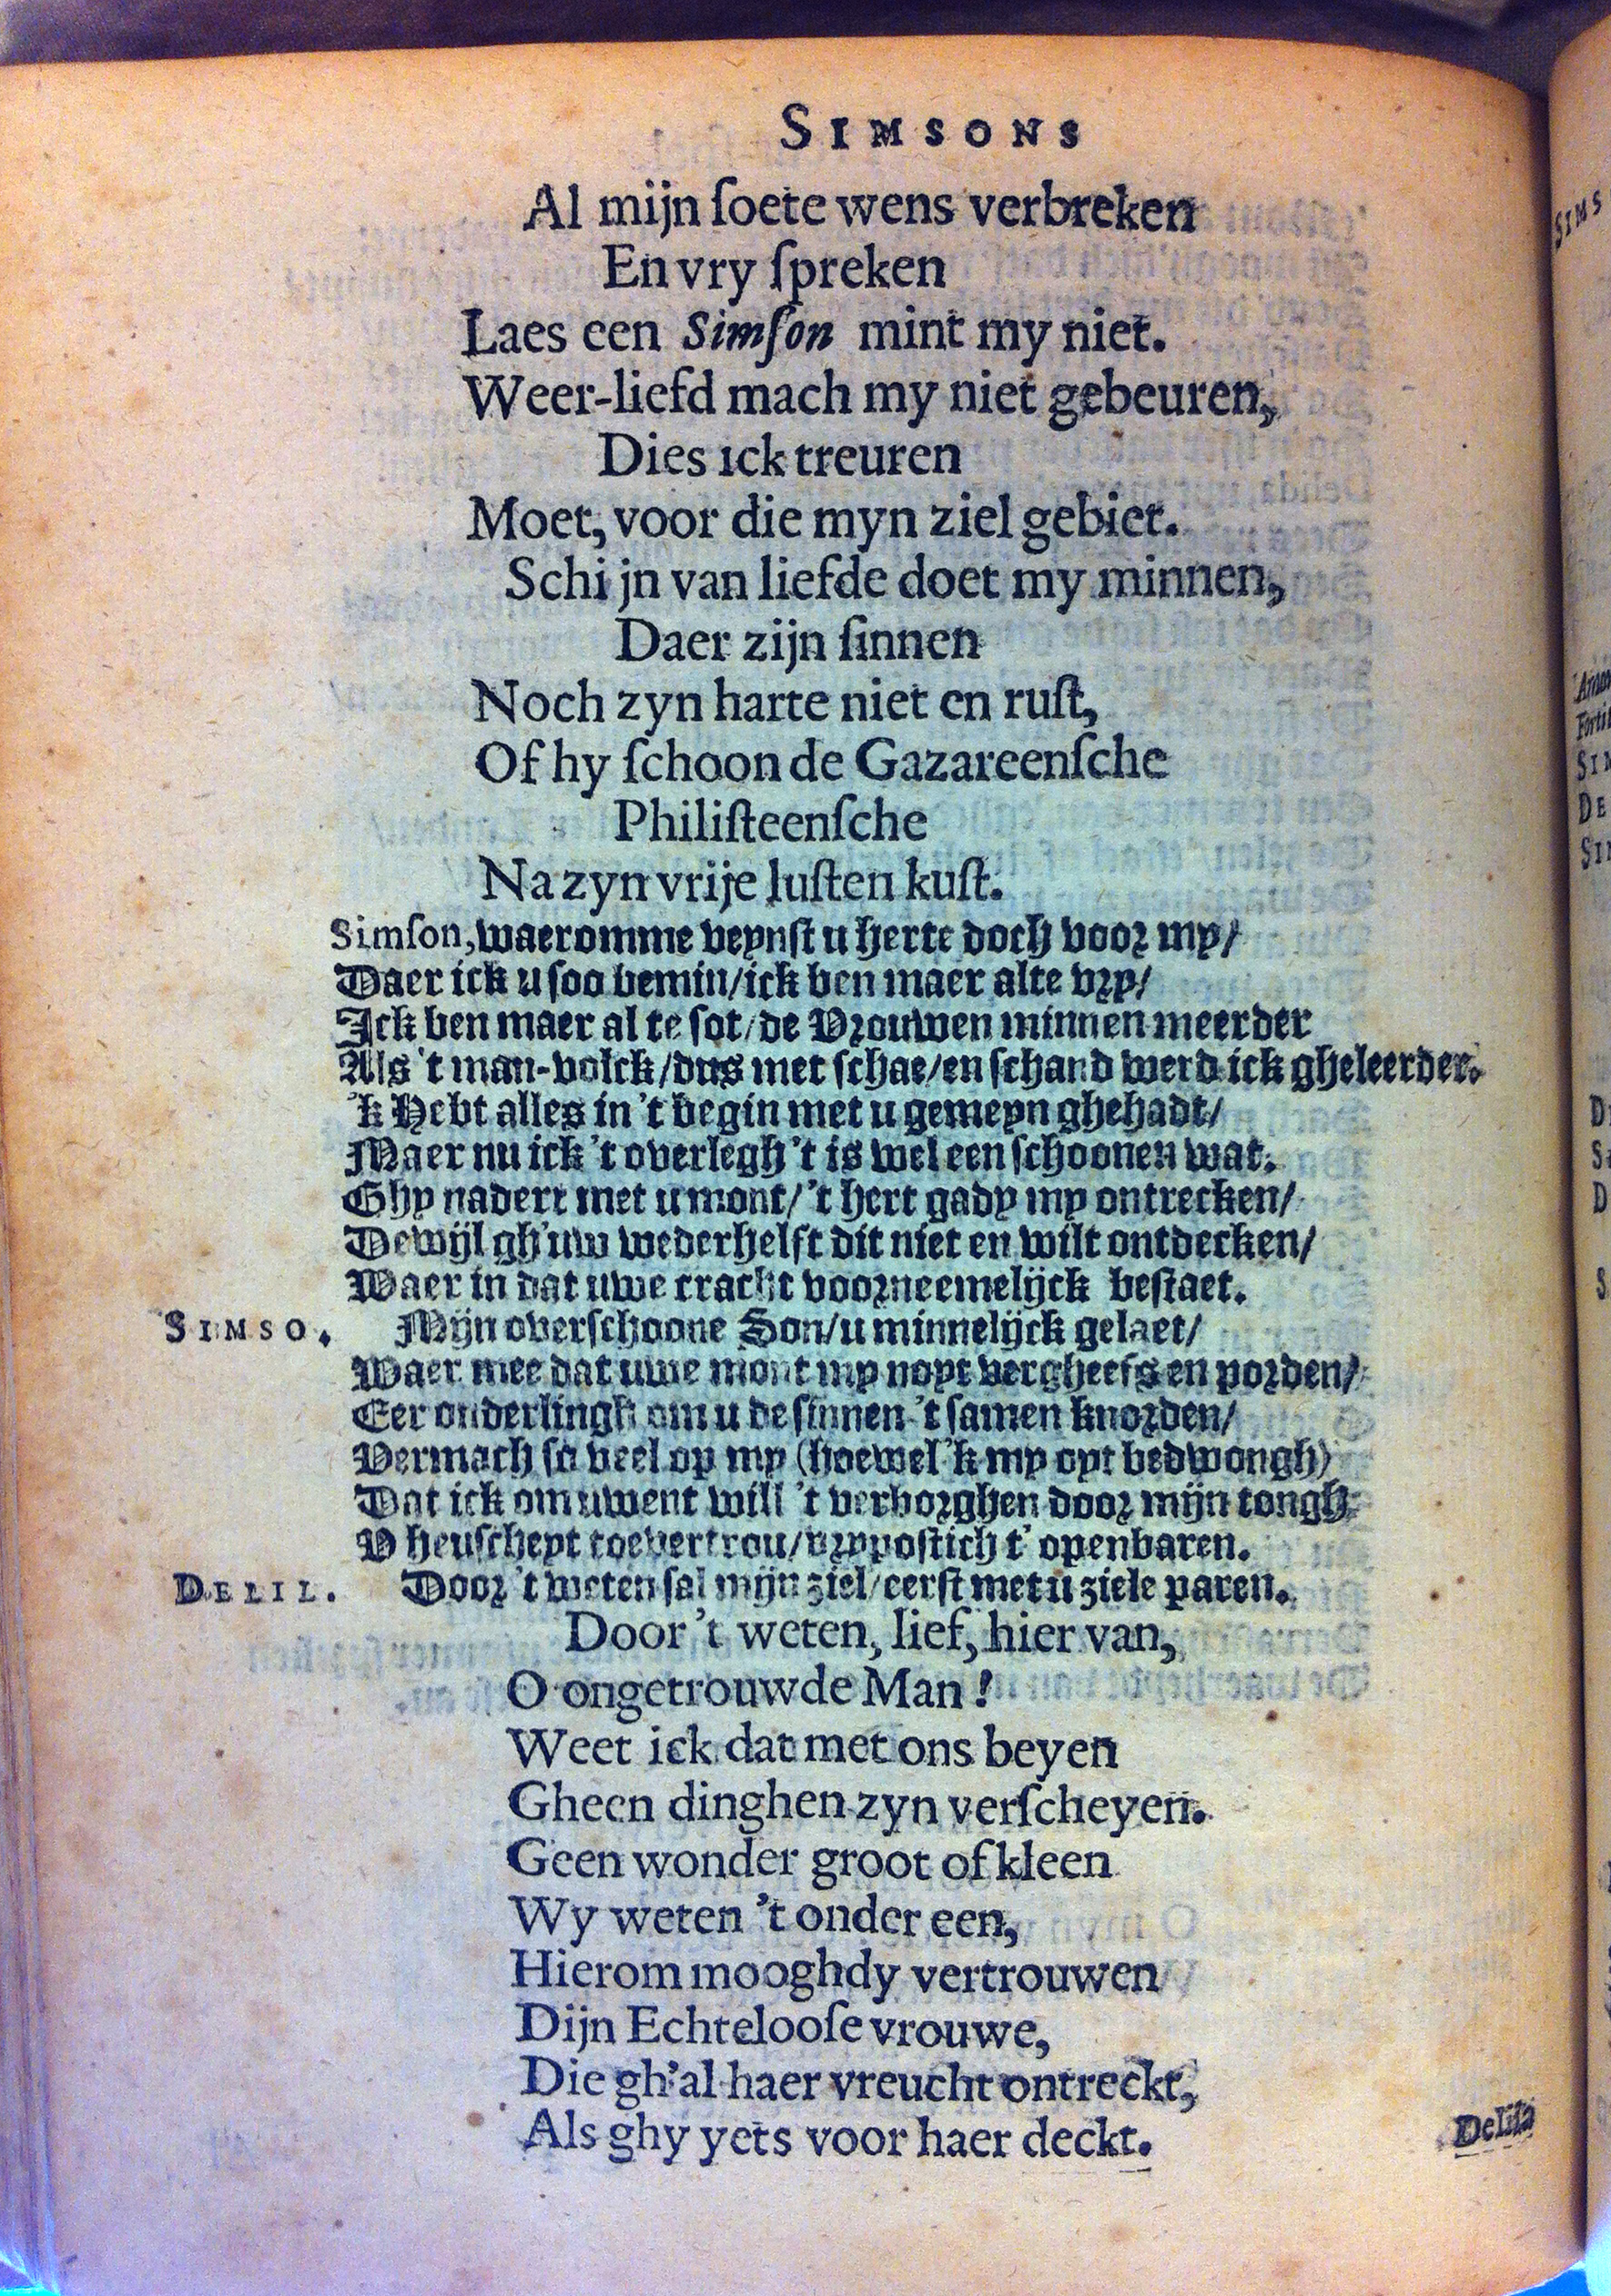 SIMSONS
Al mijn ſoete wens verbreken
En vry ſpreken
Laes een Simſon mint my niet.
Weer-liefd mach my niet gebeuren,
Dies ick treuren
Moet, voor die myn ziel gebiet.
Schijn van liefde doet my minnen,
Daer zijn ſinnen
Noch zyn harte niet en ruſt,
Of hy ſchoon de Gazareenſche
Philiſteenſche
Na zyn vrije luſten kuſt.
Simſon, waeromme veynſt u herte doch voor my/
Daer ick u ſoo bemin/ick ben maer al te vry/
Ick ben maer al te ſot/de Vrouwen minnen meerder
Als 't man-volck/dus met ſchae/en ſchand werd ick gheleerder.
'k Hebt alles in 't begin met u gemeyn ghehadt/
Maer nu ick 't overlegh 't is wel een ſchoonen wat.
Ghy nadert met u mont/'t hert gady my ontrecken/
Dewijl gh'uw wederhelft dit niet en wilt ontdecken/
Waer in dat uwe cracht voorneemelijck beſtaet.
SIMSO. Mijn overſchoone Son/u minnelijck gelaet/
Waer mee dat uwe mont my noyt vergheefs en porden/
Eer onderlingh om u de ſinnen 't ſamen knorden/
Vermach ſo veel op my (hoewel 'k my oyt bedwongh)
Dat ick om uwent will 't verborghen door mijn tongh
V heuſcheyt toevertrou/vrypoſtich t' openbaren.
DELIL. Door 't weten ſal mijn ziel/eerſt met u ziele paren.
Door 't weten, lief, hier van,
O ongetrouwde Man!
Weet ick dat met ons beyen
Gheen dinghen zyn verſcheyen.
Geen wonder groot of kleen
Wy weten 't onder een,
Hierom mooghdy vertrouwen
Dijn Echtelooſe vrouwe,
Die gh'al haer vreucht ontreckt,
Als ghy yets voor haer deckt.
Delila